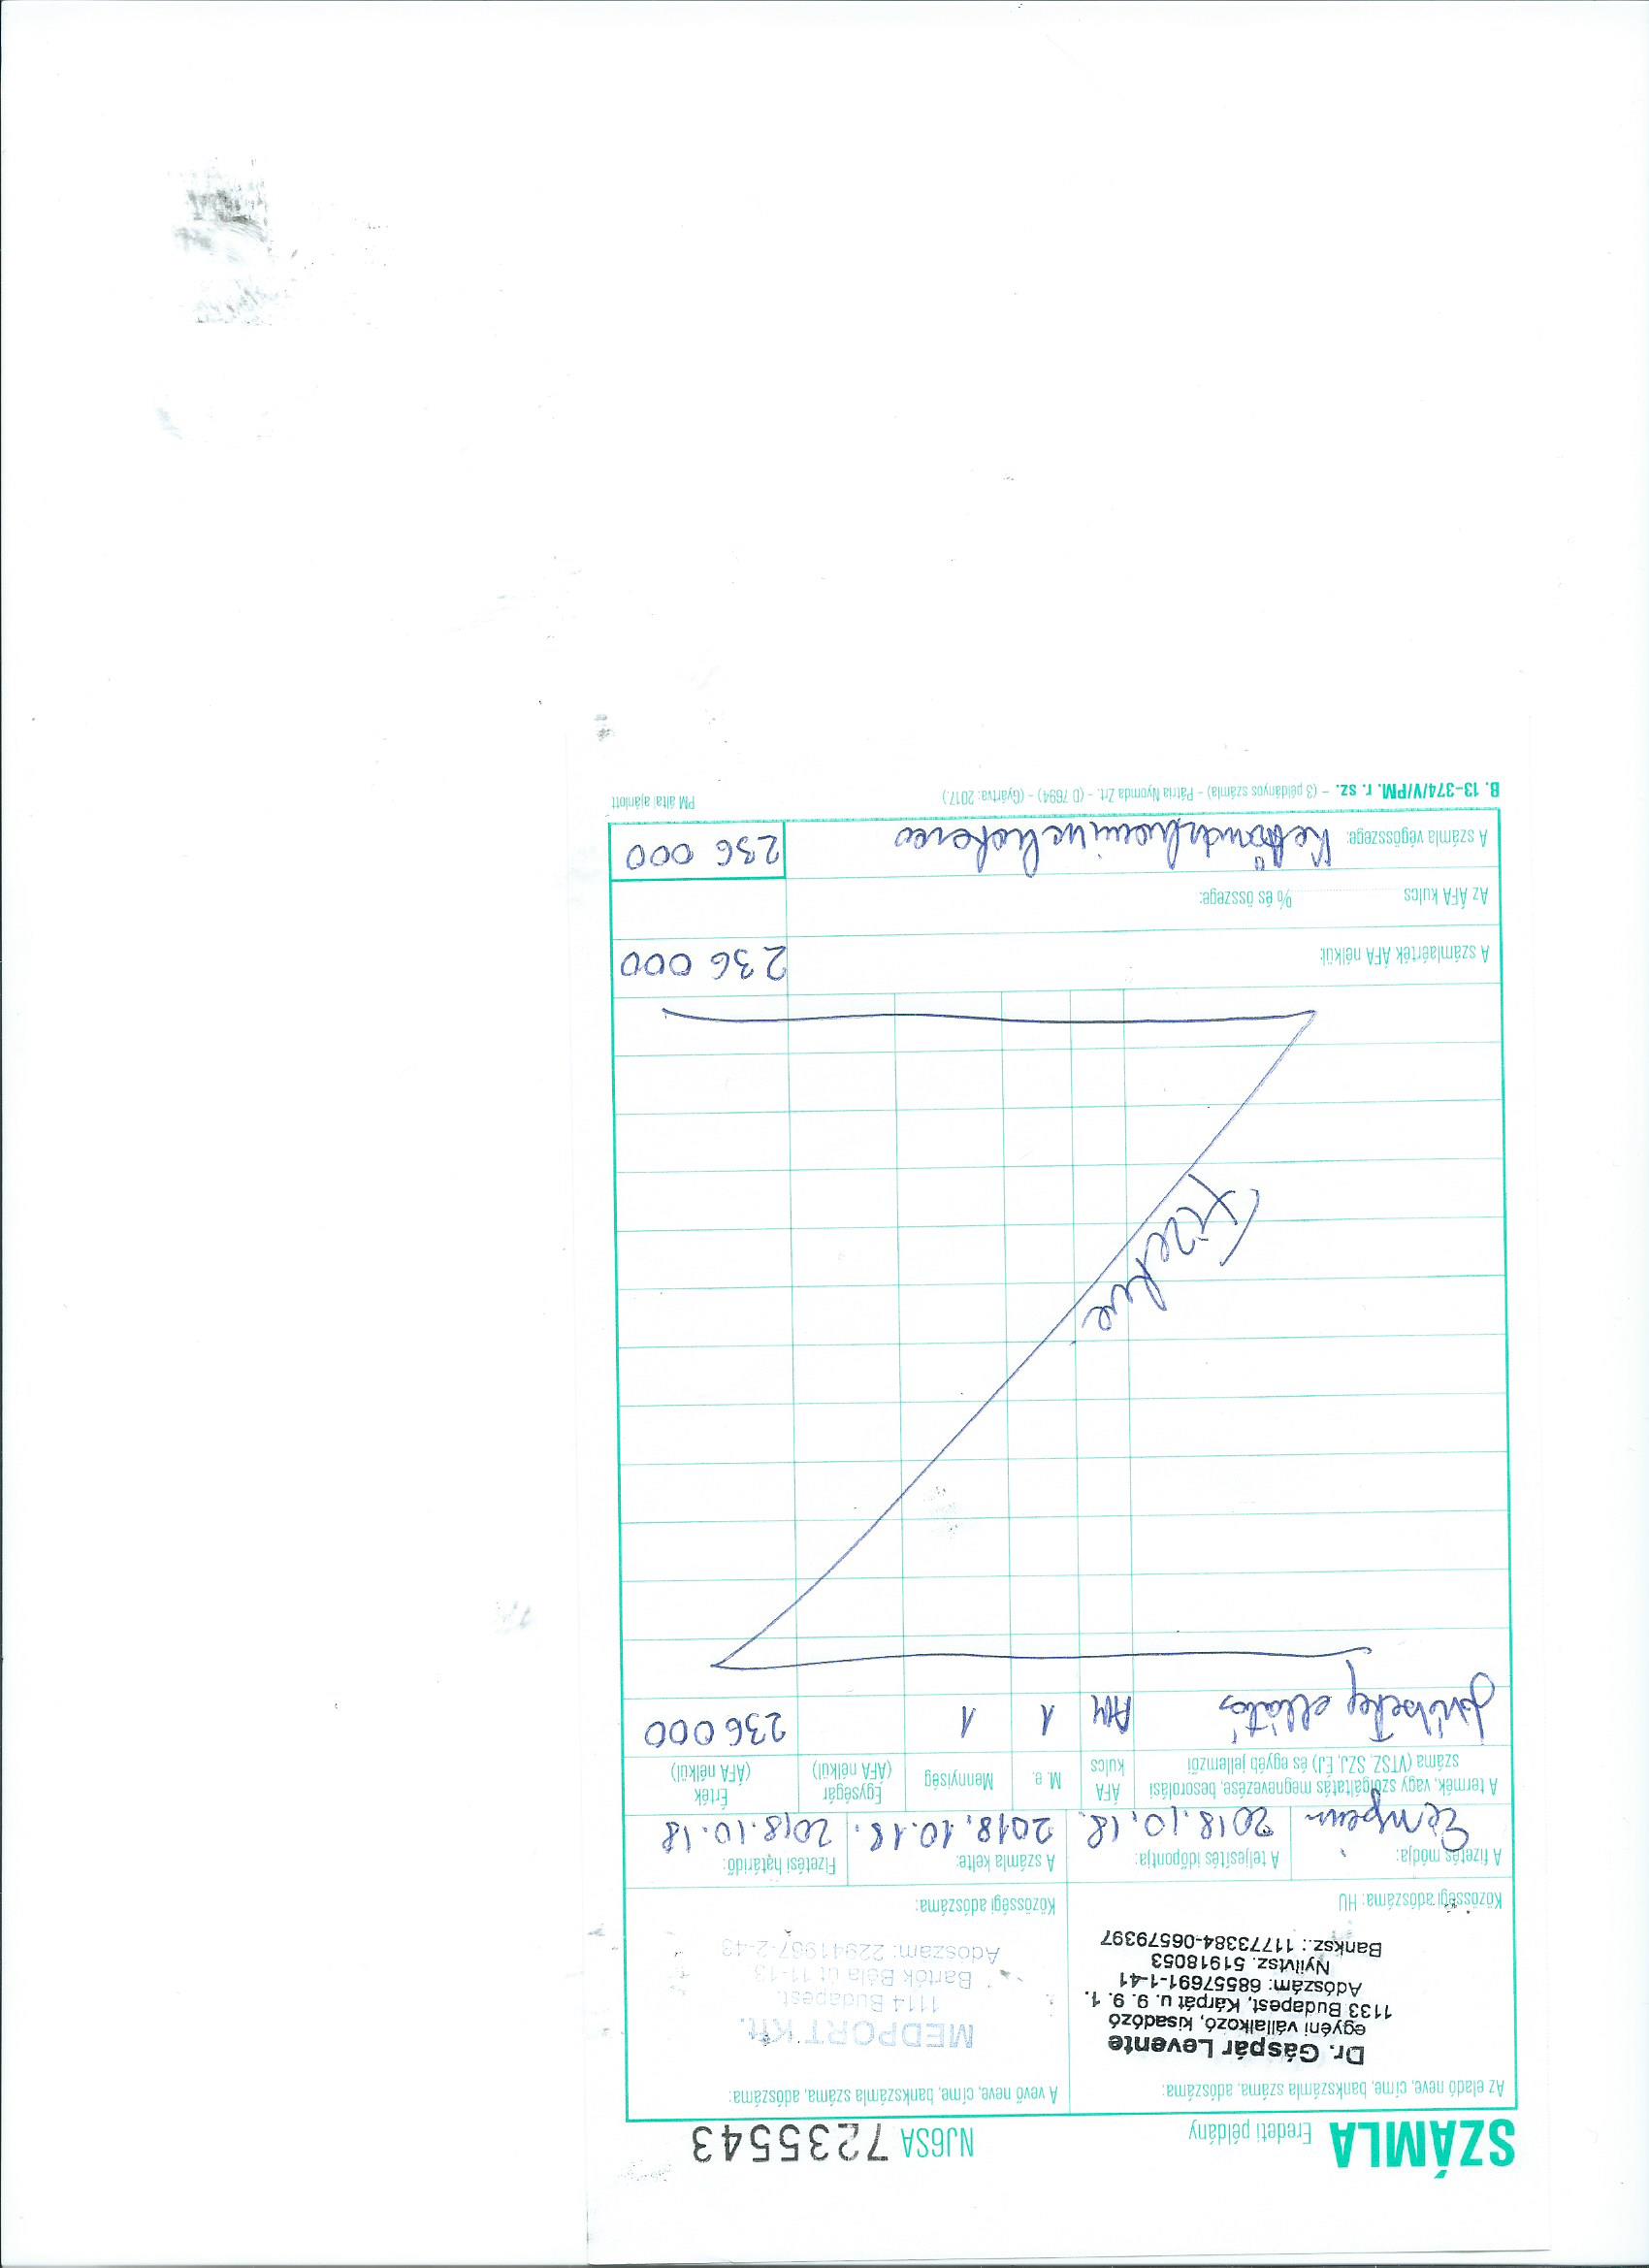 SZÁMLA Eredeti példány NJ6SA 7235543
Az eladó neve, címe, bankszámla száma, adószáma:
Dr. Gáspár Levente
egyéni vállalkozó, kisadózó
1133 Budapest, Kárpát u. 9. 9. 1.
Adószám: 68557691-1-41
Nyilvtsz. 51918053
Banksz.: 11773384-06579397
Közösségi adószáma: HU
A vevő neve, címe, bankszámla száma, adószáma:
MEDPORT Kft.
1114 Budapest,
Bartók Béla út 11-13
Adószám: 22941967-2-43
Közösségi adószáma:
A fizetés módja: A teljesítés időpontja: A számla kelte: Fizetési határidő:
2018.10.18. 2018.10.18. 2018.10.18
A termék, vagy szolgáltatás megnevezése, besorolási száma (VTSZ, SZJ, ÉJ) és egyéb jellemzői
ÁFA kulcs
M. e.
Mennyiség
Egységár (ÁFA nélkül)
Érték (ÁFA nélkül)
ellátás AM 1 1 236 000
Fizetve
A számlaérték ÁFA nélkül: 236 000
Az ÁFA kulcs % és összege:
A számla végösszege: Kettőszázharminchatezer 236 000
B. 13-374/V/PM. r. sz. – (3 példányos számla) – Pátria Nyomda Zrt. – (D 7694) – (Gyártva: 2017.) PM által ajánlott